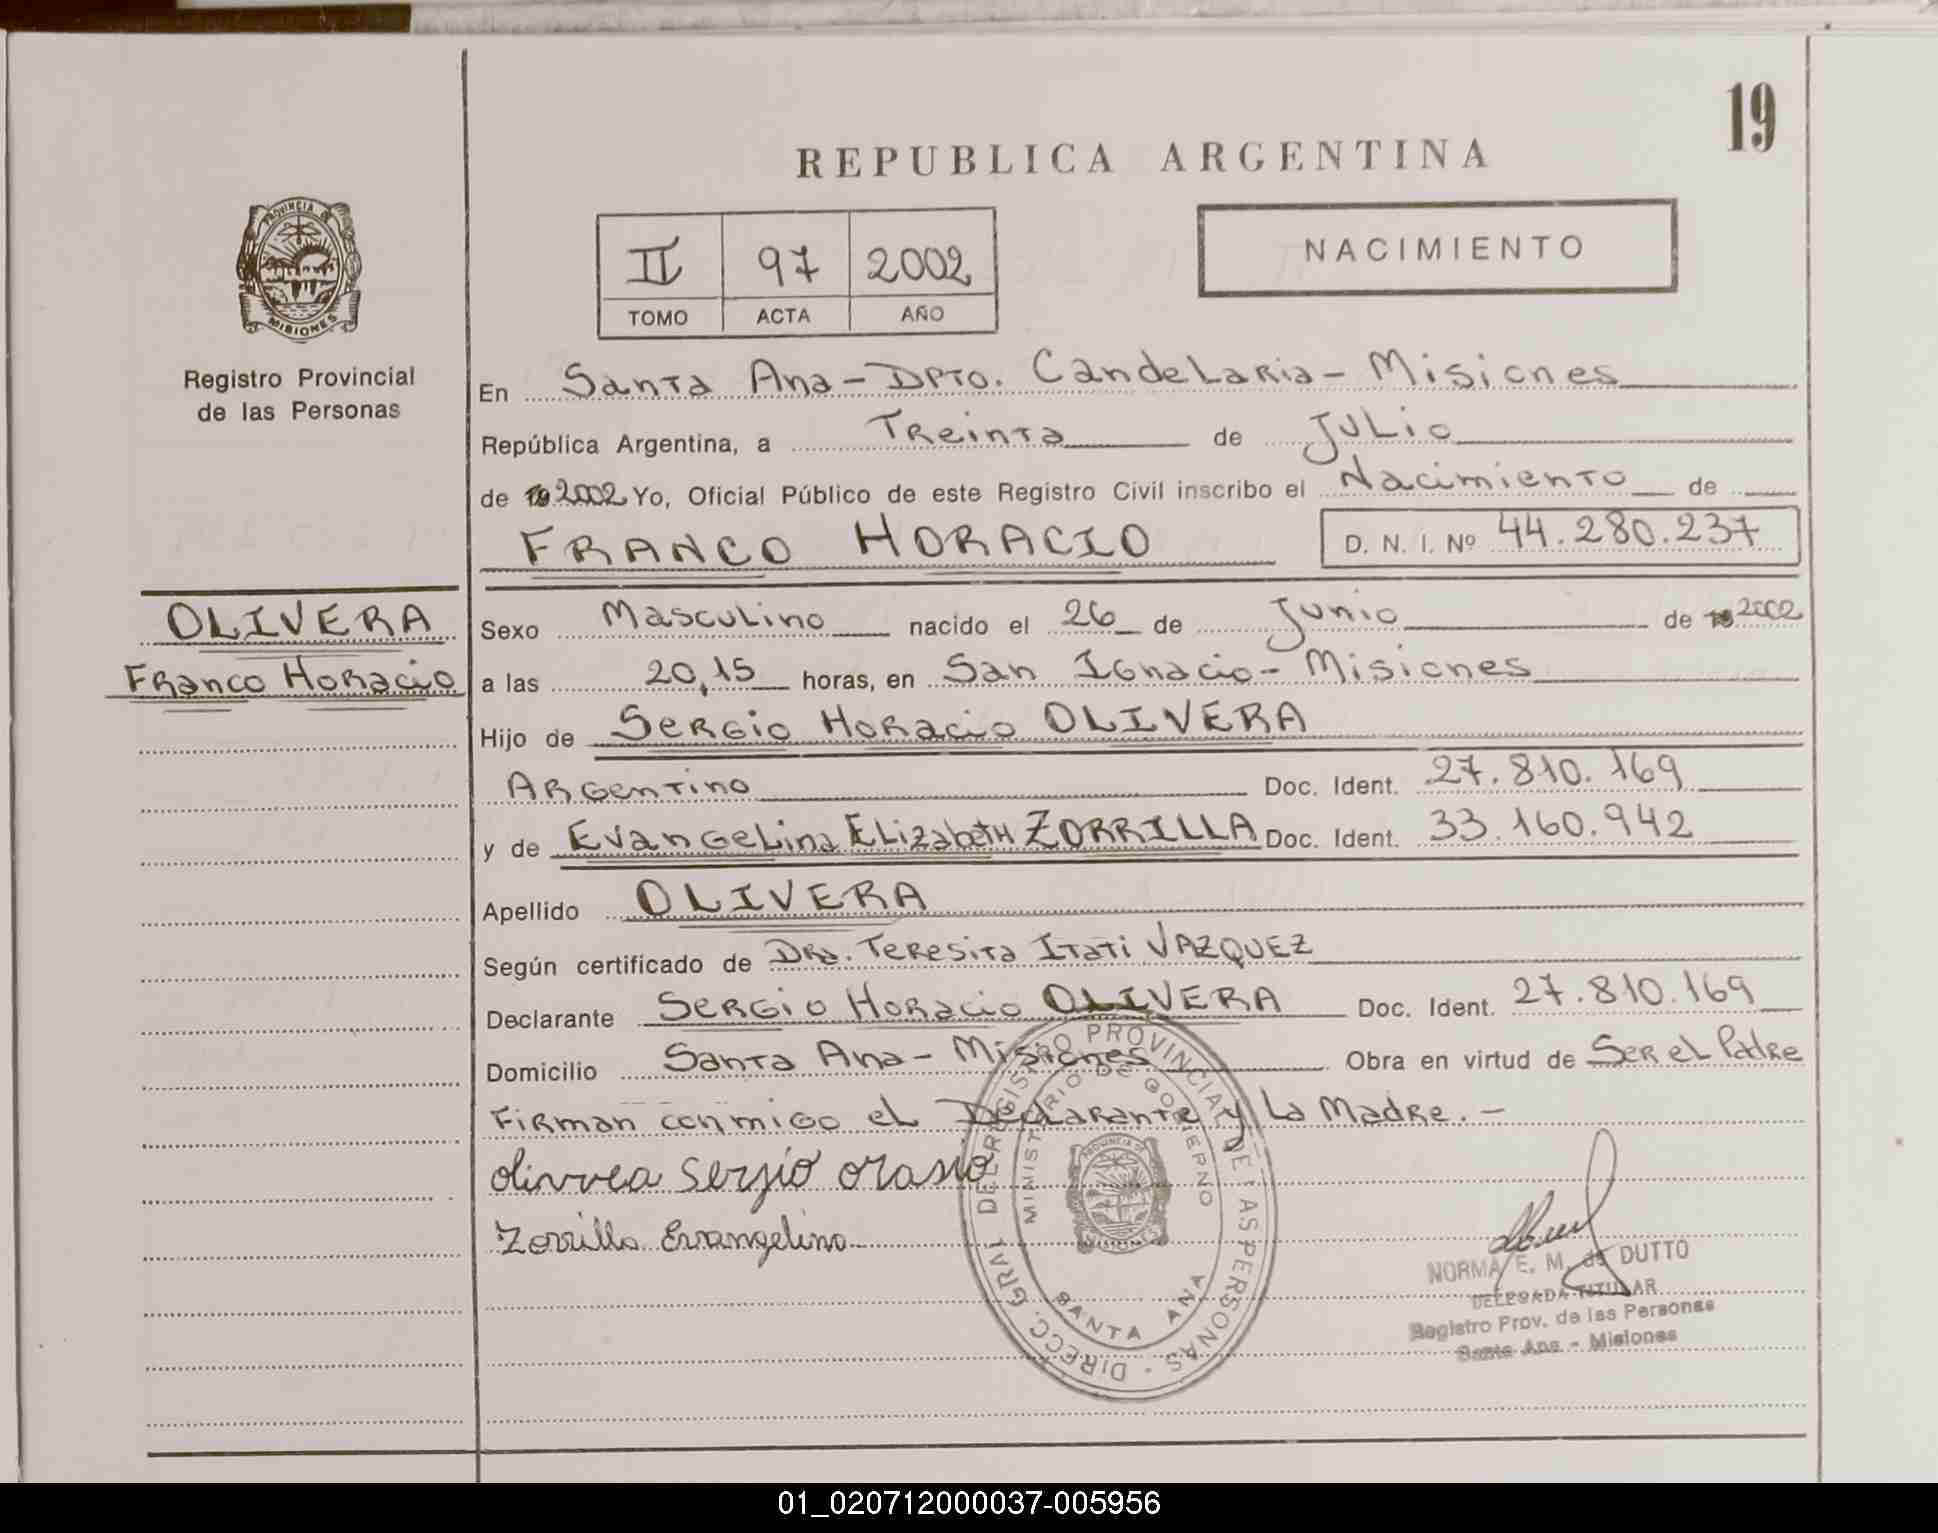 19
REPUBLICA ARGENTINA
PROVINCIA DE
MISIONES
Registro Provincial
de las Personas
II 97 2002
TOMO ACTA AÑO
NACIMIENTO
En Santa Ana - Dpto. Candelaria - Misiones
República Argentina, a Treinta de Julio
de 19 2002 Yo, Oficial Público de este Registro Civil inscribo el Nacimiento de
FRANCO HORACIO D. N. I. Nº 44.280.237
OLIVERA
Franco Horacio
Sexo Masculino nacido el 26 de Junio de 19 2002
a las 20,15 horas, en San Ignacio - Misiones
Hijo de Sergio Horacio OLIVERA
Argentino Doc. Ident. 27.810.169
y de Evangelina Elizabeth ZORRILLA Doc. Ident. 33.160.942
Apellido OLIVERA
Según certificado de Dra. Teresita Itati VAZQUEZ
Declarante Sergio Horacio OLIVERA Doc. Ident. 27.810.169
Domicilio Santa Ana - Misiones Obra en virtud de Ser el Padre
Firman conmigo el Declarante y La Madre. -
olivvea Serjio orasio
Zorrilla Evangelina
DIRECC. GRAL DEL REGISTRO PROVINCIAL DE LAS PERSONAS -
MINISTERIO DE GOBIERNO
PROVINCIA DE
MISIONES
SANTA ANA
NORMA E. M. de DUTTO
DELEGADA TITULAR
Registro Prov. de las Personas
Santa Ana - Misiones
01_020712000037-005956